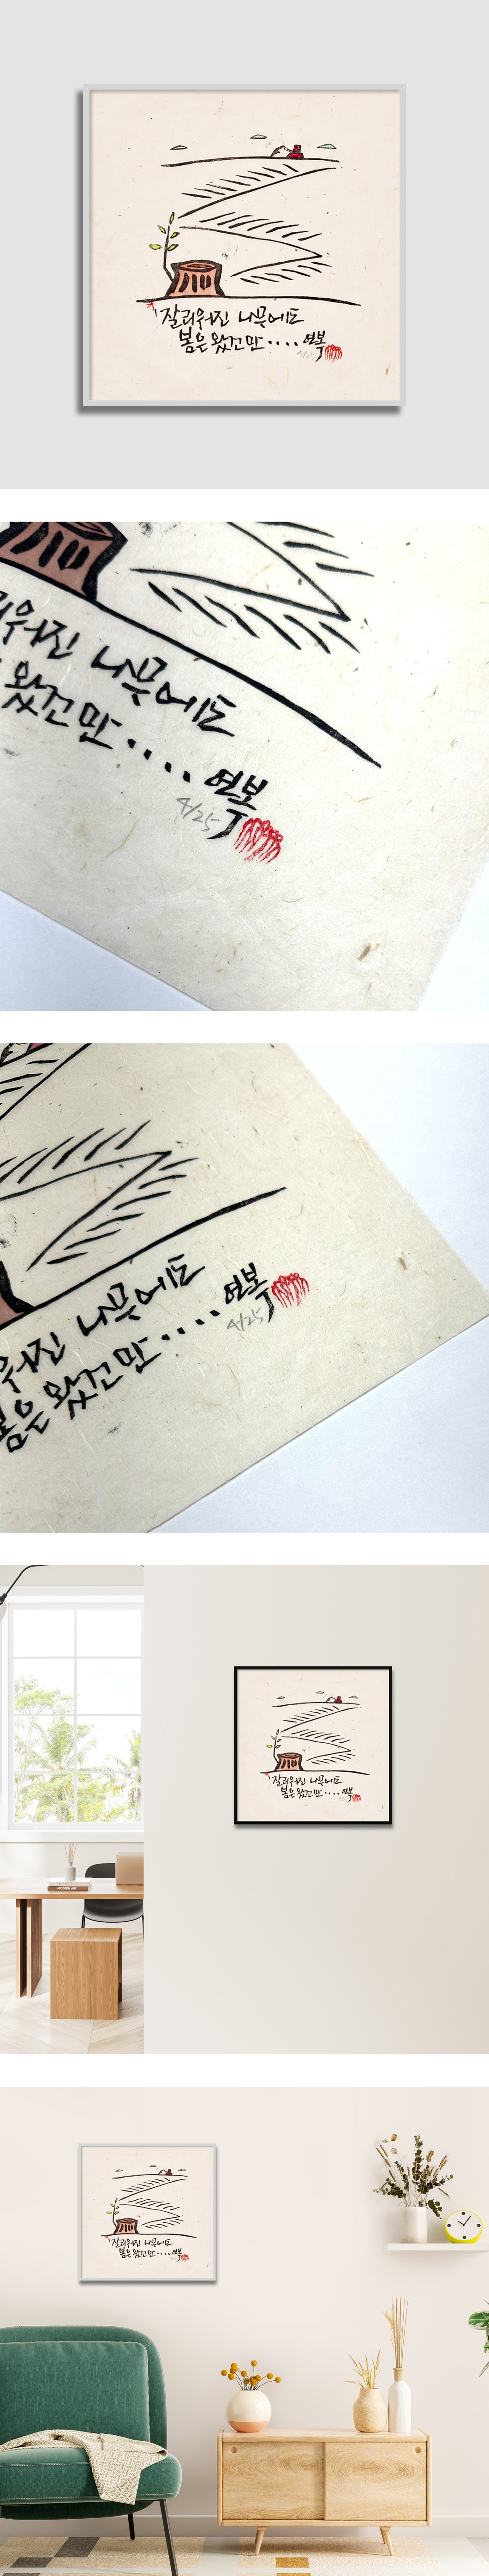 잘리워진 나무에도
봄은 왔건만.... 연복
4/25
리워진 나무에도
왔건만.... 연복
4/25
워진 나무에도
봄은 왔건만.... 연복
4/25
잘리워진 나무에도
봄은 왔건만.... 연복
잘리워진 나무에도
봄은 왔건만.... 연복